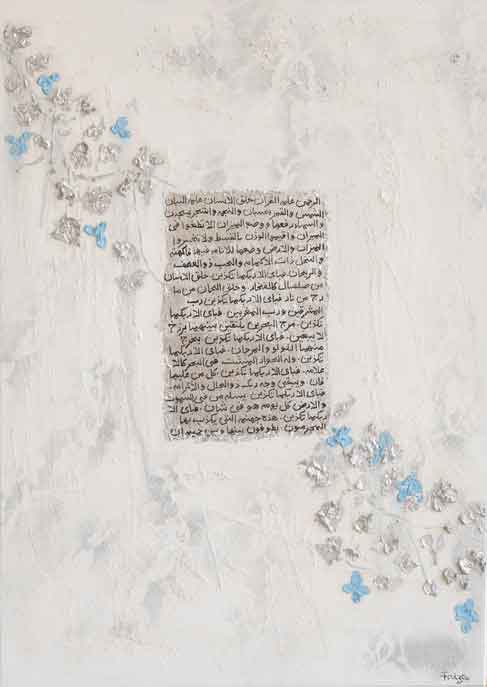 الرحمن علم القران خلق الانسان علمه البيان
الشمس والقمر بحسبان والنجم والشجر يسجدن
والسماء رفعها ووضع الميزان الا تطغوا فى
الميزان واقيموا الوزن بالقسط ولا تخسروا
الميزان والارض وضعها للانام فيها فاكهة
والنخل ذات الاكمام والحب ذو العصف
والريحان فباى الاء ربكما تكذبن خلق الانسان
من صلصال كالفخار وخلق الجان من ما
رج من نار فباى الاء ربكما تكذبن رب
المشرقين ورب المغربين فباى الاء ربكما
تكذبن مرج البحرين يلتقين بينهما برزخ
لا يبغين فباى الاء ربكما تكذبن يخرج
منهما اللولو والمرجان فباى الاء ربكما
تكذبن وله الجوار المنشت فى البحر كالا
علام فباى الاء ربكما تكذبن كل من عليها
فان ويبقى وجه ربك ذو الجلل والاكرام
فباى الاء ربكما تكذبن يسله من فى السموت
والارض كل يوم هو فى شان فباى الا
ربكما تكذبن هذه جهنم التى يكذب بها
المجرمون يطوفون بينها وبين حميم ان